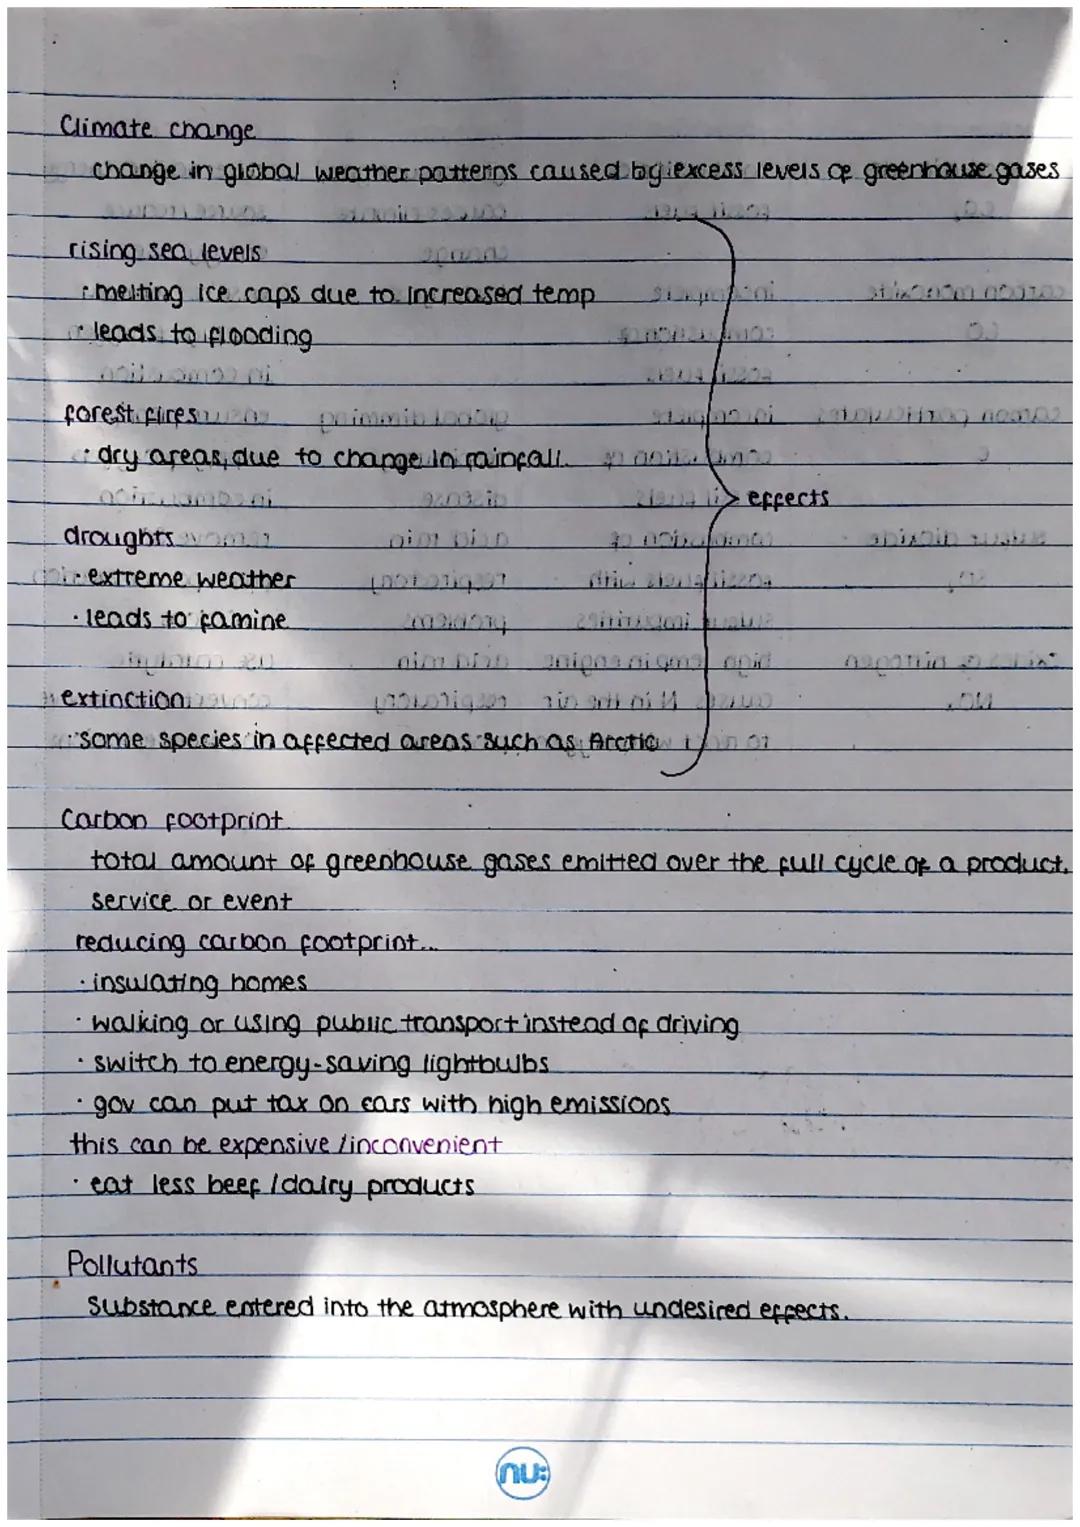 Climate change
change in global weather patterns caused by excess levels of greenhouse gases
rising sea levels
· melting ice caps due to increased temp
· leads to flooding
forest fires
· dry areas, due to change in rainfall.
effects
droughts
· extreme weather
· leads to famine
extinction
· some species in affected areas such as Arctic
Carbon footprint
total amount of greenhouse gases emitted over the full cycle of a product,
service or event
reducing carbon footprint...
· insulating homes
· walking or using public transport instead of driving
· switch to energy-saving lightbulbs
· gov can put tax on cars with high emissions
this can be expensive / inconvenient
· eat less beef / dairy products
Pollutants
Substance entered into the atmosphere with undesired effects.
nu: